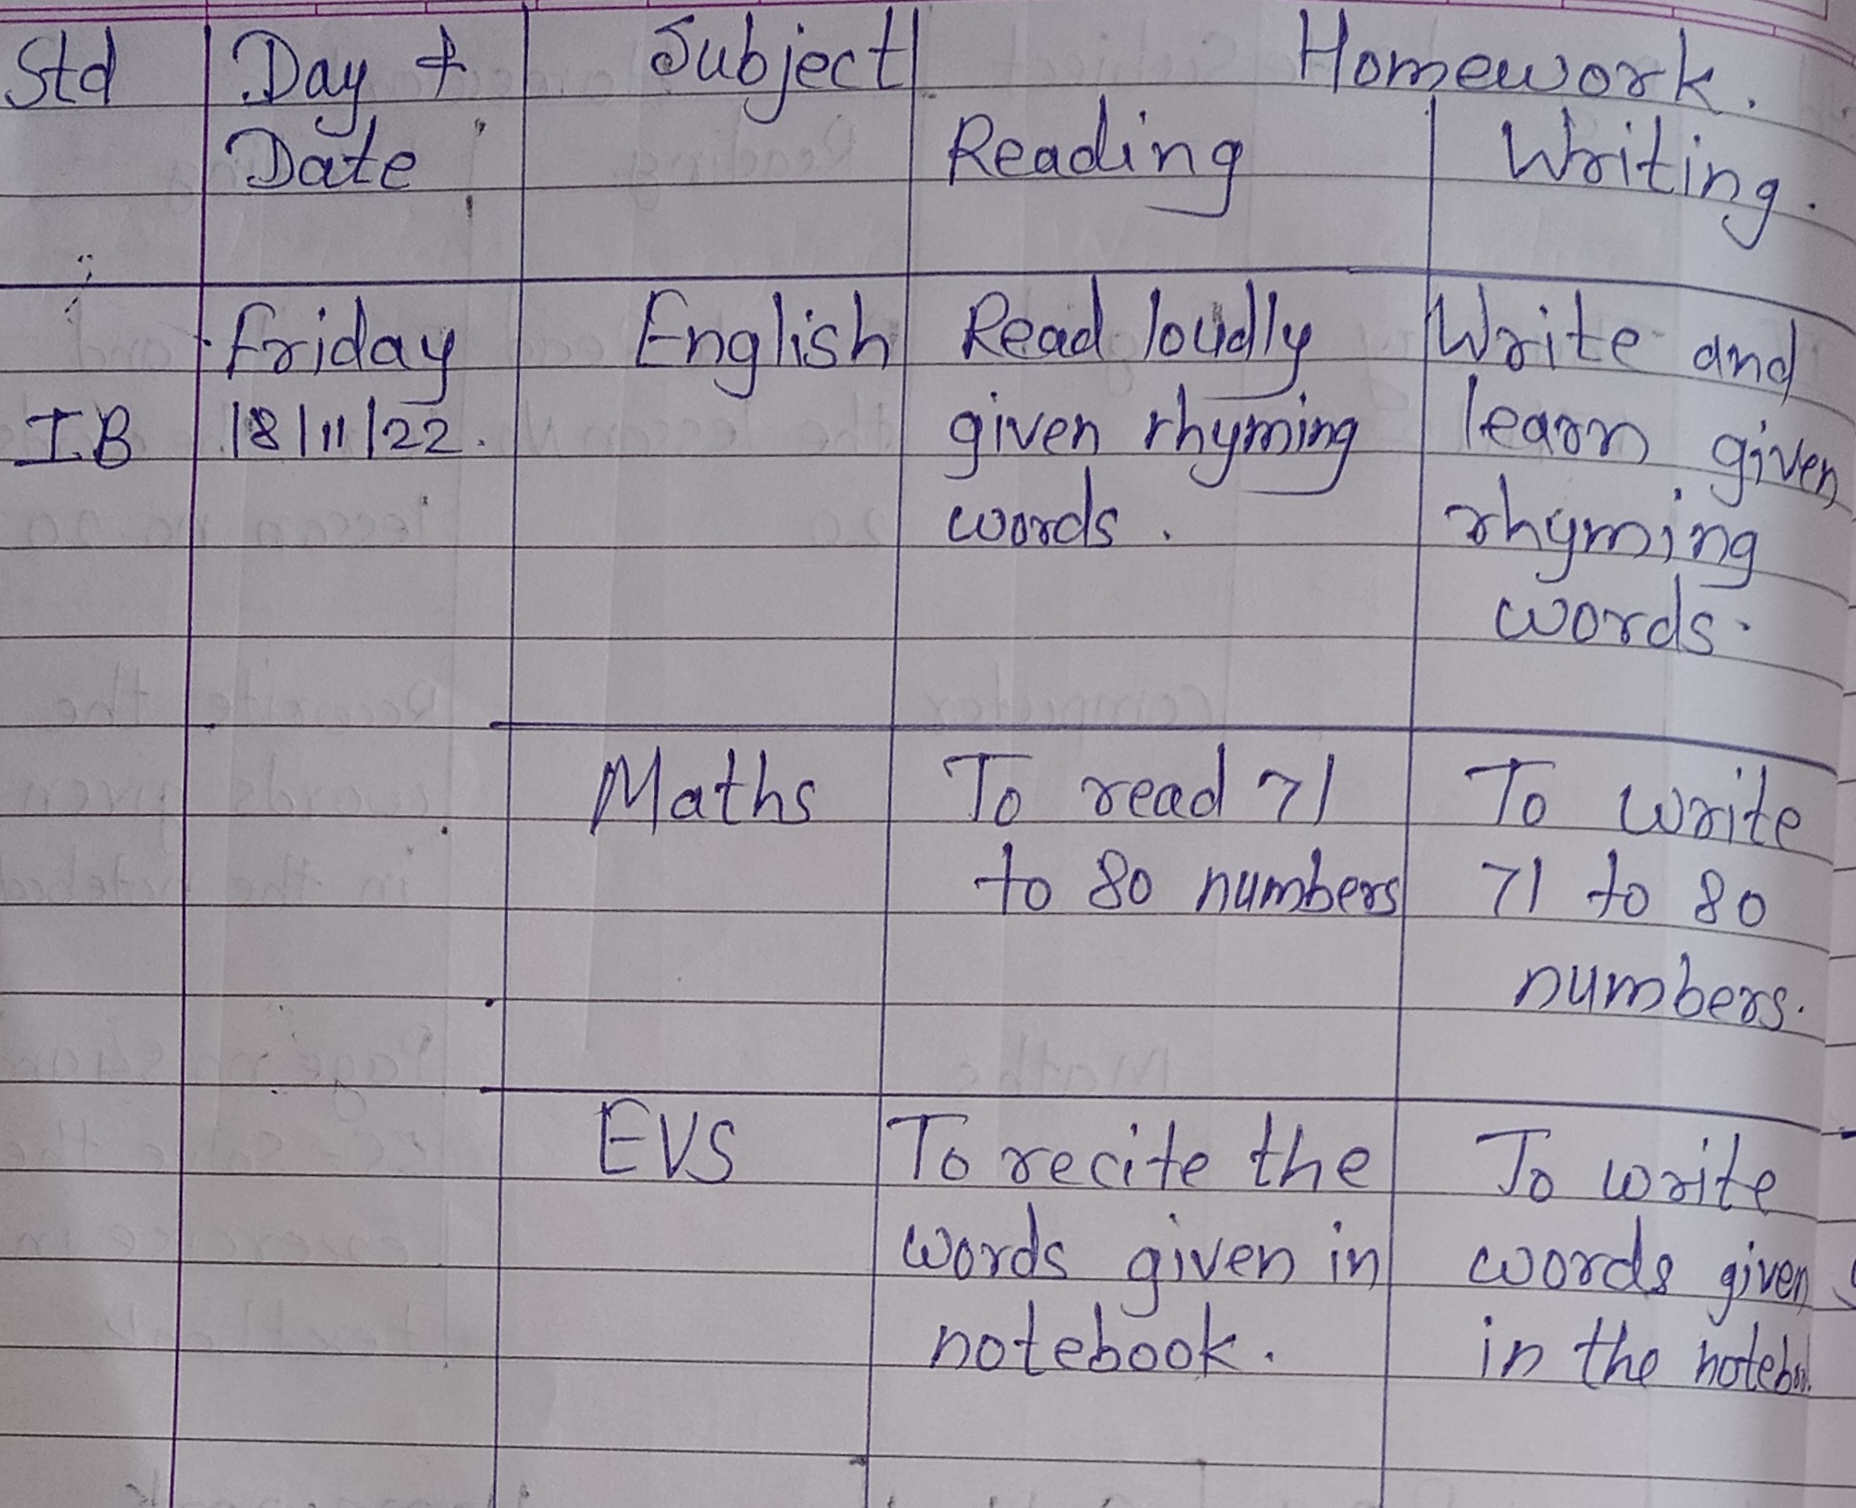 Std Day & Subject Homework.
Date Reading Writing.
Friday English Read loudly Write and
IB 18/11/22. given rhyming learn given
words. rhyming
words.
Maths To read 71 To write
to 80 numbers 71 to 80
numbers.
EVS To recite the To write
words given in words given
notebook. in the